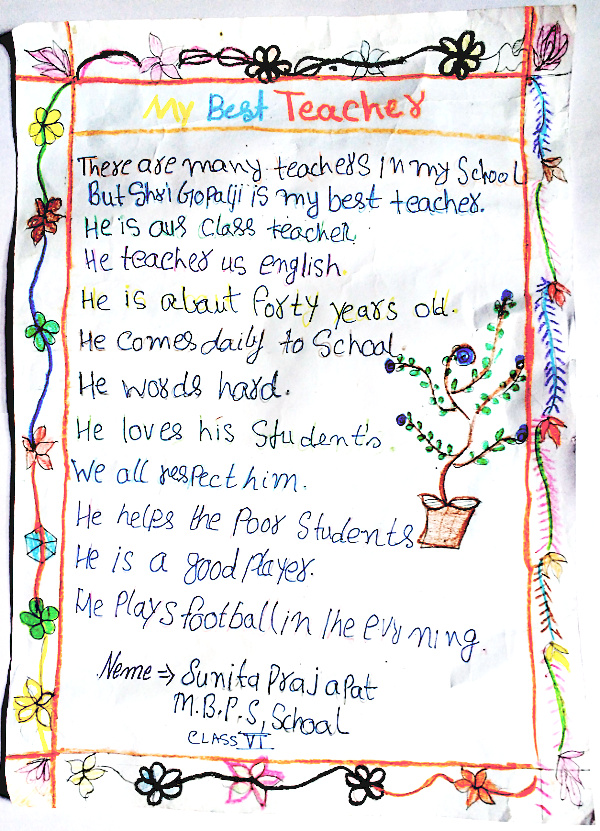 My Best Teacher
There are many teachers in my School
But Shri Gopalji is my best teacher.
He is our Class teacher
He teacher us english
He is alaut forty years old.
He comes daily to School
He words hard.
He loves his Student's
We all respect him.
He helps the Poor Students
He is a good player.
He Plays football in the evrning.
Neme ⇒ Sunita Prajapat
M.B.P.S, School
CLASS VI